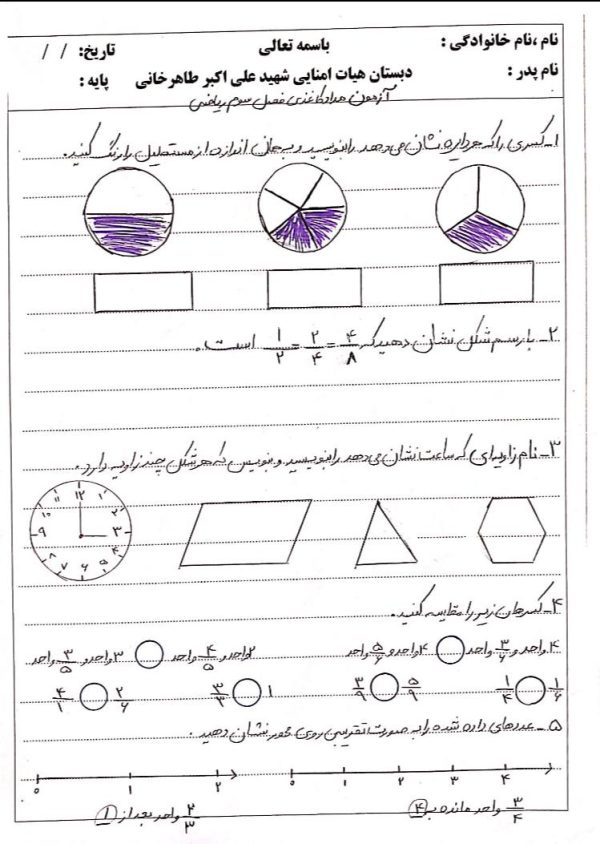 نام ،نام خانوادگی :
باسمه تعالی
تاریخ: / /
نام پدر :
دبستان هیات امنایی شهید علی اکبر طاهرخانی
پایه :
آزمون مدادکاغذی فصل سوم ریاضی
۱- کسری را که هر دایره نشان می‌دهد را بنویسید و به همان اندازه از مستطیل را رنگ کنید.
۲- با رسم شکل نشان دهید که ۴/۸ = ۲/۴ = ۱/۲ است.
۳- نام زاویه‌ای که ساعت نشان می‌دهد را بنویسید و بنویس که هر شکل چند زاویه دارد.
۱۲ ۱ ۲ ۳ ۴ ۵ ۶ ۷ ۸ ۹ ۱۰ ۱۱
۴- کسرهای زیر را مقایسه کنید.
۴ واحد و ۳/۶ واحد ○ ۴ واحد و ۵/۶ واحد
۲ واحد و ۴/۵ واحد ○ ۳ واحد و ۳/۵ واحد
۱/۶ ○ ۱/۴
۵/۹ ○ ۳/۹
۱ ○ ۳/۳
۲/۶ ○ ۴/۱
۵- عددهای داده شده را به صورت تقریبی روی محور نشان دهید.
۰ ۱ ۲
۰ ۱ ۲ ۳ ۴
۳/۴ واحد مانده به ۴
۲/۳ واحد بعد از ۱